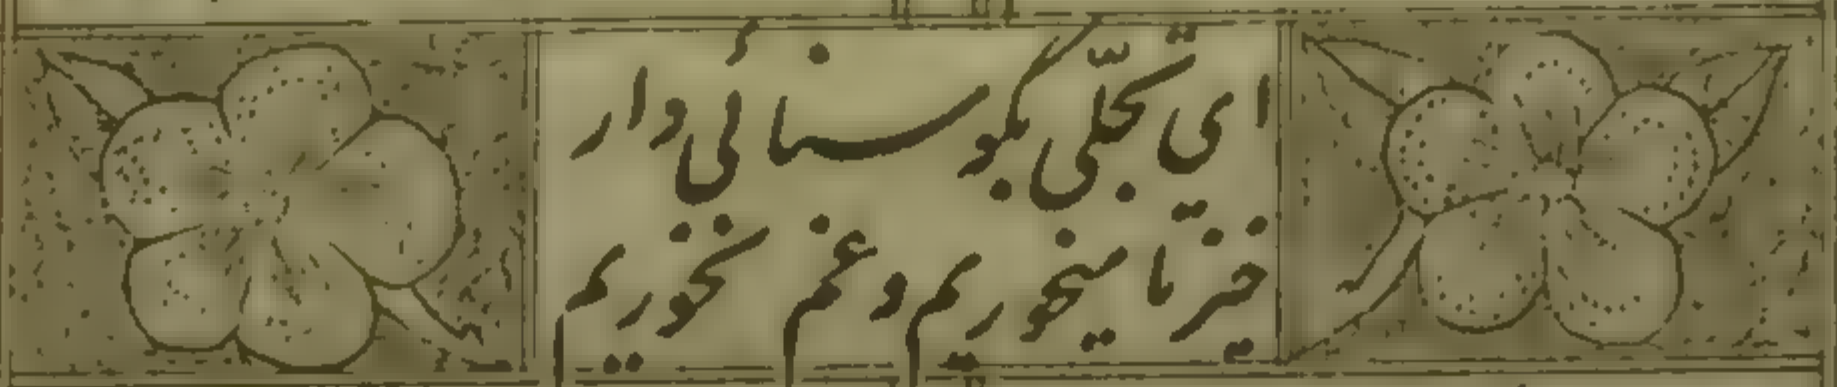 ای تجلّی بگو سنائی وار
خیز تا میخوریم و غم نخوریم